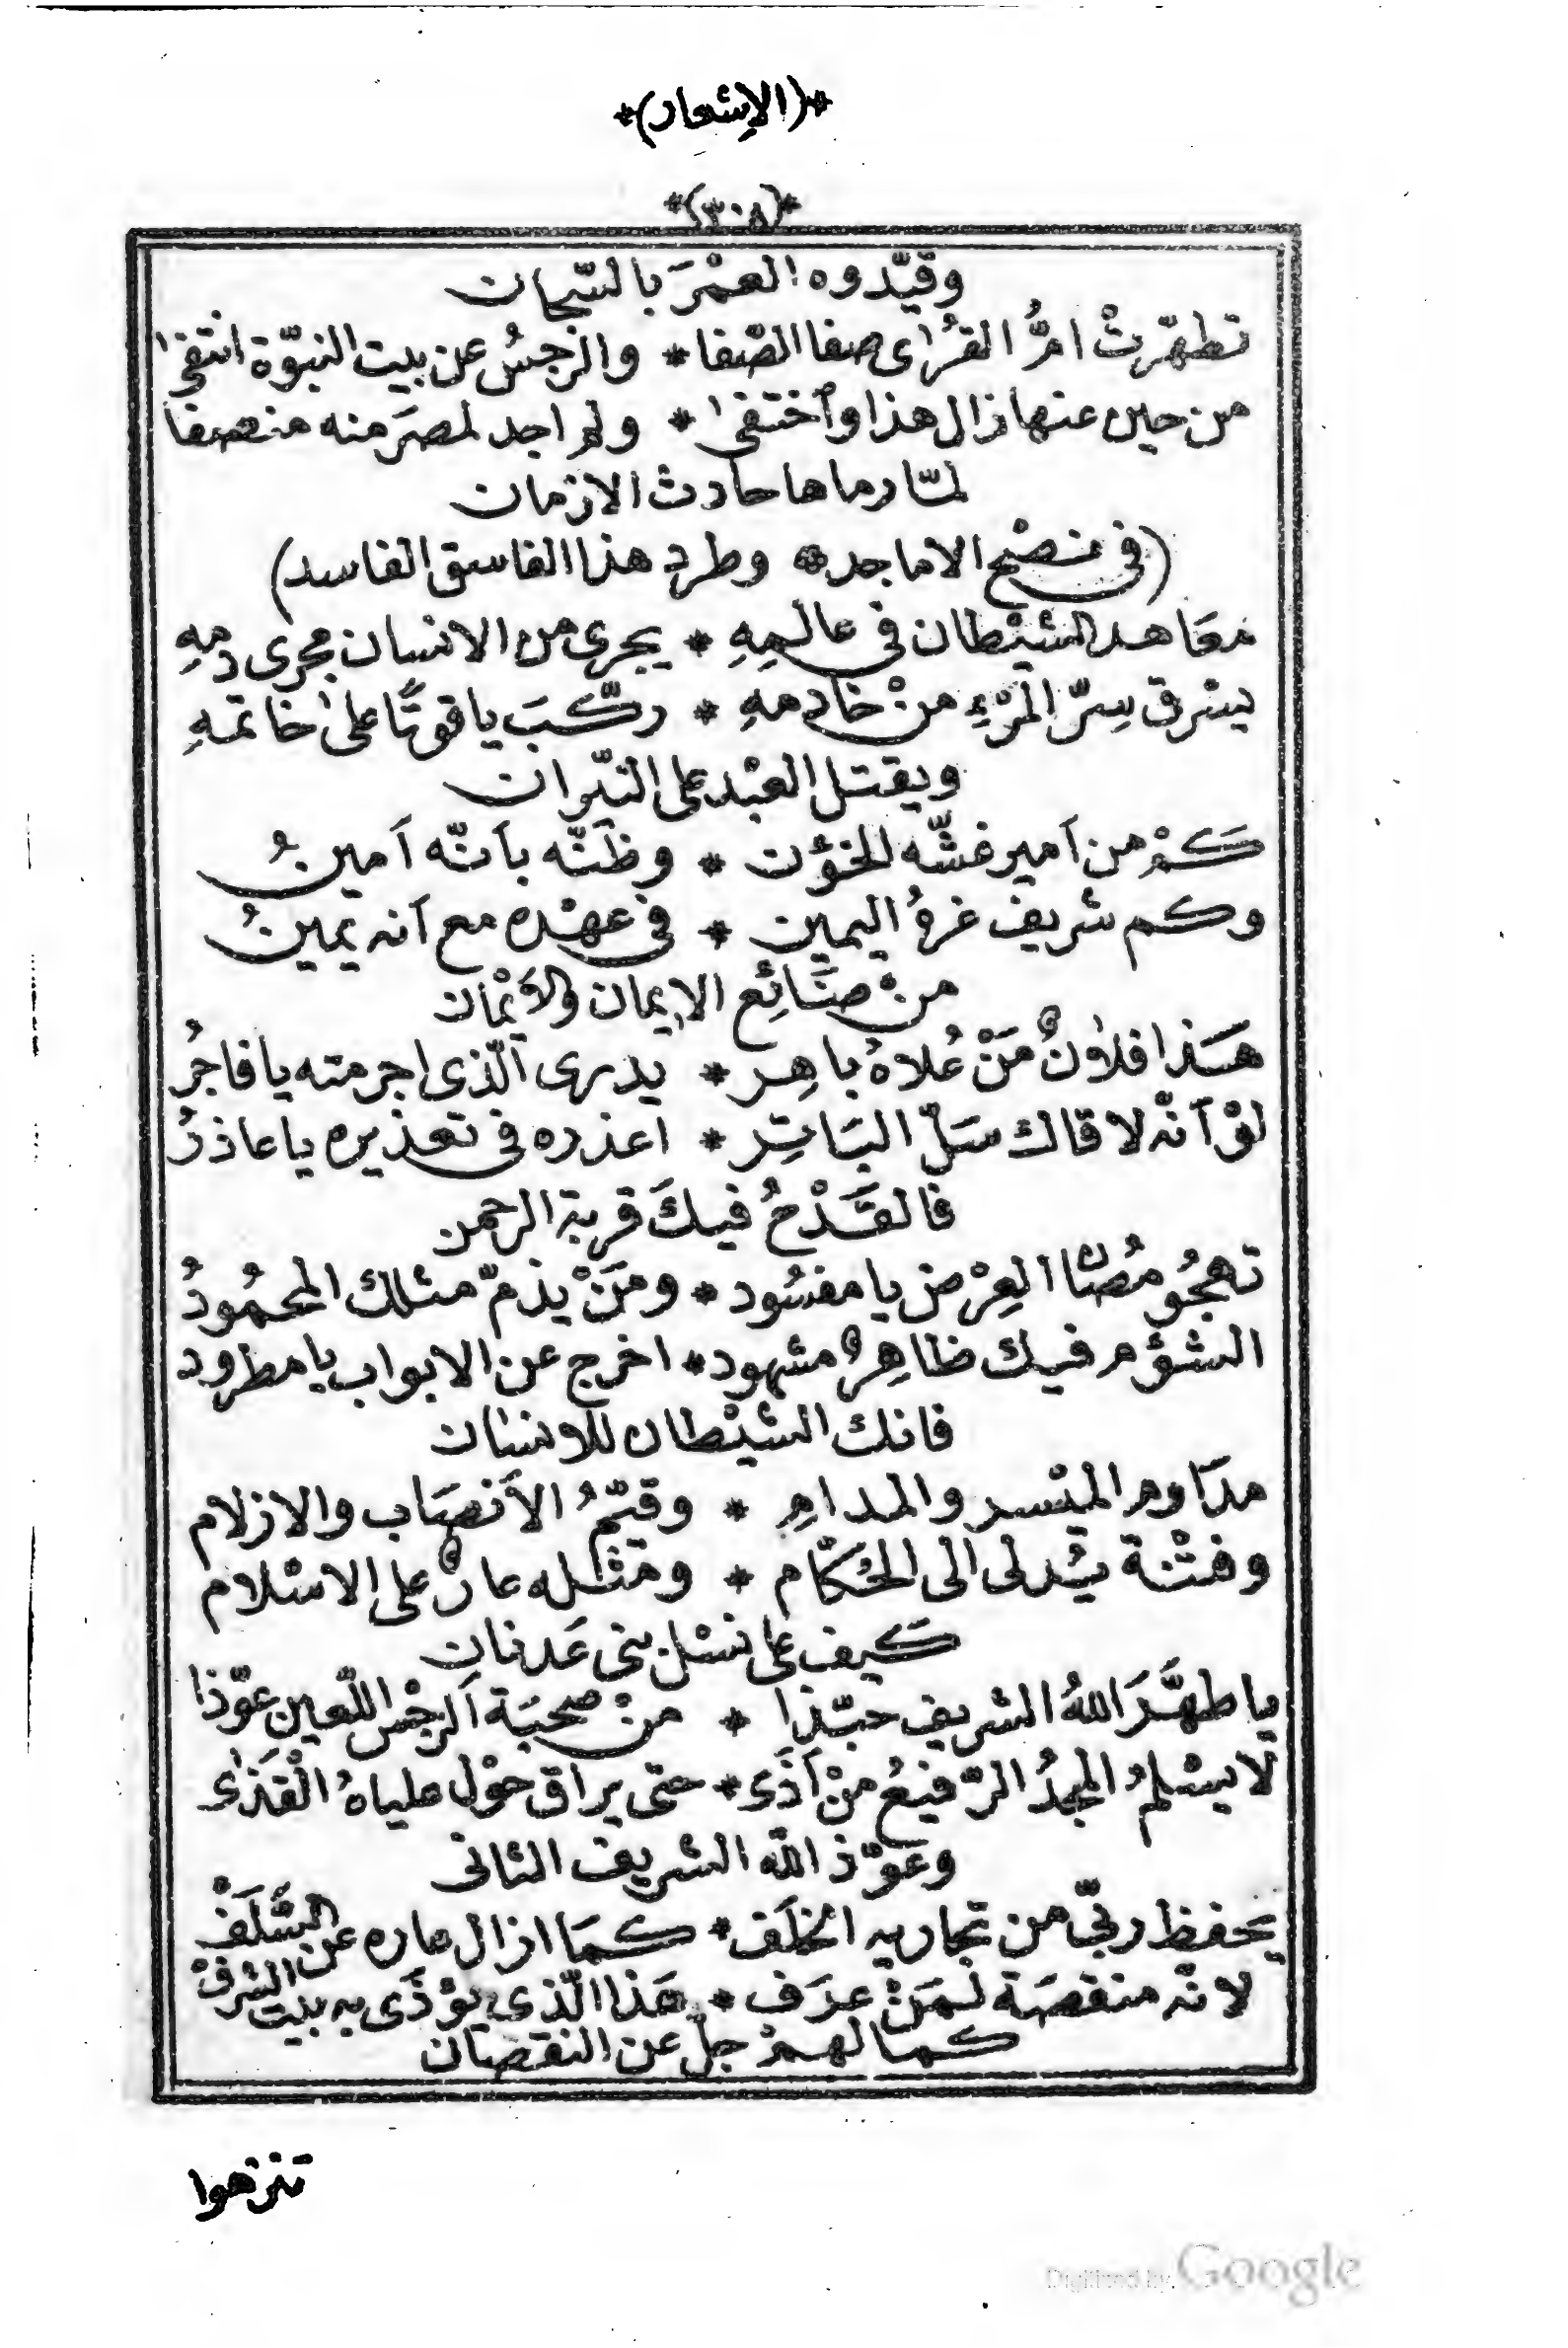 *(الإشعار)*
*(٣٠٨)*
وقيّدوه العمْرَ بالسّجان
تطهّرتْ امُّ القُرٰى صفا الصّفا * والرّجسُ عن بيت النبوّة انتفىٰ
من حين عنها زال هذا وٱختفىٰ * ولم اجد لمصرَ منه منصفا
لمّا رماها حادث الازمان
(فى نصْح الاماجد * وطرد هذا الفاسق الفاسد)
معَاهد الشيْطان فى عالمِهِ * يجرى من الانسان مجرى دمِهِ
يسْرق سِرّ المرْءِ منْ خادمهِ * ركّبَ ياقوتًا علىٰ خاتمهِ
ويقتل العبْد على النّيران
كَمْ من اَمير غشّه الخؤن * وظَنّه باَنّه اَمينُ
وكم شريف غرهُ اليمين * فى عهْده مع اَنه يمينُ
منْ صنَائِع الإيمان والأيْمان
هَذا فلانٌ مَنْ عُلاهُ باهِر * يدرى الّذى اجرمته يا فاجرُ
لوْ اَنّه لاقاك سَلّ البَاتِر * اعذره فى تعذيره يا عاذرُ
فالقَدْحُ فيكَ قربة الرحمن
تهجُو مُصَانَ العِرْض يا مفسُود * ومَنْ يذمّ مثلك المحمُودُ
الشؤم فيك ظاهِرٌ مشهود * اخرج عن الابواب يا مطرود
فانك الشيْطان للانسَان
مدَاوم الميْسر والمدامِ * وقيّمُ الأنصَاب والازلام
وفتْنة يُدلى الى الحُكّام * ومثْله عارٌ على الاسْلام
كَيف على نسْل بنى عَدنانِ
يا طهَّرَ اللهُ الشريف حبّذا * منْ صحْبَة اَلرجْس اللّعين عوّذا
لا يسْلمُ المجدُ الرّفيعُ منْ اَذَى * حتى يراق حوْل علياهُ الْقذَىٰ
وعَوّذ اللّه الشريف الثانى
يَحفظ ربّى من تجاريه الخلَف * كمَا ازال عاره عن السَّلَفْ
لانّه منقصَة لمَنْ عرَف * هَذا الّذى يؤذَى به بيت الشرفْ
كمالهمْ جلّ عن النقصَان
تنزهوا
Digitized by Google